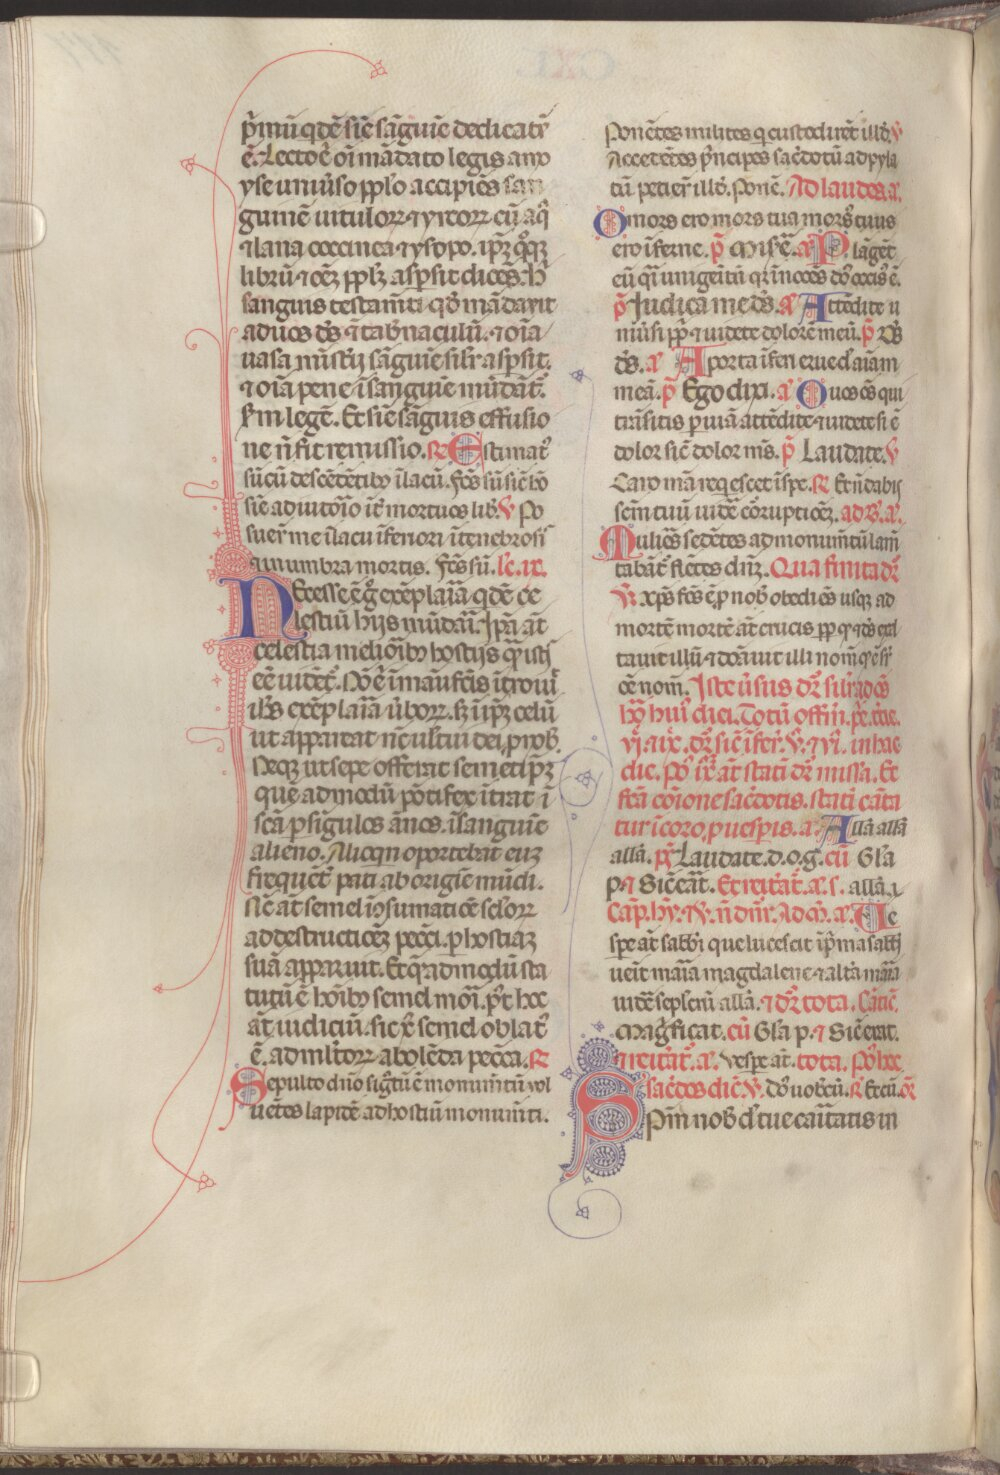 p̃mũ qdẽ siñe sãguiẽ dedicatũ
ẽ. Lecto ẽ oĩ mãdato legis a mo
yse uniũso ppl̃o accipiẽs san
guinẽ uitulorꝝ ⁊ yrcorꝝ cũ aq̃
⁊ lana coccinea ⁊ ysopo. ip̃ꝫ qͦꝫ
librũ ⁊ oẽꝫ pplꝫ asp̃sit dicẽs. h̃
sanguis testam̃ti qd̃ mãdauit
ad uos dẽs. ⁊ tab̃naculũ. ⁊ oĩa
uasa mĩstẽij sãguiẽ sil̃r asp̃sit.
⁊ oĩa pene ĩ sanguiẽ mũdãt᷑.
s̃m legẽ. Et siñe sãguis effusio
ne ñ fit remissio. ꝶ Estimat᷑
sũ cũ descẽdẽtibꝰ ĩ lacũ. Fc̃s sũ sic̃ hõ
siñe adiutoĩo ĩt᷑ mortuos lib̃. ℣ Po
suer̃ me ĩ lacu ĩferiori ĩ tenebrosis
⁊ ĩ umbra mortis. Fc̃s sũ. lc̃. ix.
Necesse ẽ g̊ exẽplaĩa qdẽ ce
lestiũ hijs mũdari. Ip̃a aũt
celestia melioribꝰ hostijs qͣ̃ istis
eẽ uidet᷑. Nõ ẽ ĩ manufc̃is ĩtroiũ
ih̃s exẽplaĩa ũborꝝ. sꝫ ĩ ip̃ꝫ celũ
ut appareat nc̃ uultui dei, p nob̃.
Neqꝫ ut sepe offerat semetip̃ꝫ
quẽ admodũ põtifex ĩtrat ĩ
sc̃a p sĩgulos ãnos. ĩ sanguiẽ
alieno. Alioqn oportebat euꝫ
freqẽt᷑ pati ab origiẽ mũdi.
Nũc aũt semel ĩ cõsumatiõe sclorꝝ
ad destructiõeꝫ pecc̃i. p hostiaꝫ
suã apparuit. Et qͣ̃admodũ sta
tutũ ẽ hoĩbꝰ semel mori. p̃ hoc
aũt iudiciũ. sic ⁊ x̃ semel oblat᷑
ẽ. ad mltorꝝ abolẽda pecc̃a. ꝶ
Sepulto dño sig̃tũ ẽ monumẽtũ uol
uẽtes lapidẽ ad hostiũ monum̃ti.
Ponẽtes milites q custodirẽt illũ. ℣
Accedẽtes p̃ncipes sac̃dotũ ad pyla
tũ petier̃ illũ. Ponẽ. Ad laudes. a̅.
O mors ero mors tua morsꝰ tuus
ero ĩferne. p̃ Mis̃e. a̅ Plãgẽt
eũ q̃i unigeĩtũ qꝛ ĩnocẽs dñs occisꝰ ẽ.
p̃ Iudica me dẽs. a̅ Attẽdite u
niũsi ppl̃i ⁊ uidete dolorẽ meũ. p̃ Dẽs
dẽs. a̅ A porta ĩferi erue dñe aĩam
meã. p̃ Ego dixi. a̅ O uos oẽs qui
trãsitis p uiã attẽdite ⁊ uidete si ẽ
dolor sic̃ dolor mẽs. p̃ Laudate. ℣
Caro mã requiescet ĩ spe. ꝶ Et ñ dabis
sc̃m tuũ uidẽ corruptiõeꝫ. ad b̃. a̅.
Mulieẽs sedẽtes ad monumẽtũ lam̃
tabãt᷑ flẽtes dũꝫ. Qua finita dr̃
℣. Xp̃s fc̃s ẽ p nob̃ obediẽs usqꝫ ad
mortẽ mortẽ aũt crucis ppt̃ qd̃ ⁊ dẽs exal
tauit illũ ⁊ donauit illi nom̃ qd̃ ẽ sup̃
oẽ nom̃. Iste ũsus dr̃ sil̃r ad oẽs
hõꝫ huiꝰ diei. Totũ offm̃. p̃e. t̃ie.
vj. ⁊ ix. dr̃ sic̃ ĩ fer̃. v. ⁊ vj. in hac
die. Põ ix̃ aũt statĩ dr̃ missa. Et
fc̃a cõione sac̃dotis. statĩ cãta
tur ĩ coro. p uesp̃is. a̅. Alla alla
alla. p̃s Laudate. d. o. g. cũ Gla
p̃. ⁊ Sic̃ erat. Et reitãt᷑. a̅. s. alla. ⁊
Cap. hy. ⁊ ℣. ñ dñr. Ad m̃. a̅. Ue
spe aũt sabb̃i que lucescit ĩ p̃ma sabb̃i
uenit maĩa magdalene ⁊ alt̃a maĩa
uidẽ sepulcrũ alla. ⁊ dr̃ tota. Cãtic̃.
Magñficat. cũ Gla p̃. ⁊ Sic̃ erat.
⁊ reitãt᷑. a̅. Vespe aũt. tota. Põ hec
sac̃dos dic̃. ℣. Dñs uobcũ. ꝶ Et cũ. or̃
Spm̃ nob̃ dñe tue caritatis in